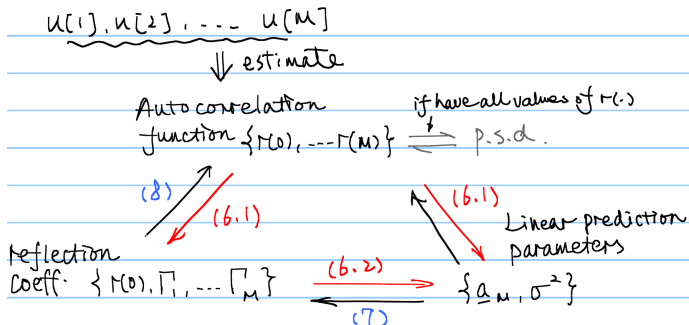 u[1], u[2], .... u[M]
⇓ estimate
Autocorrelation
function {r(0), ...r(M)} ⇌ p.s.d.
if have all values of r(·)
(8)
(6.1)
(6.1)
Linear prediction
parameters
reflection
coeff. {r(0), Γ₁, ... Γ_M}
(6.2)
(7)
{a_M, σ²}